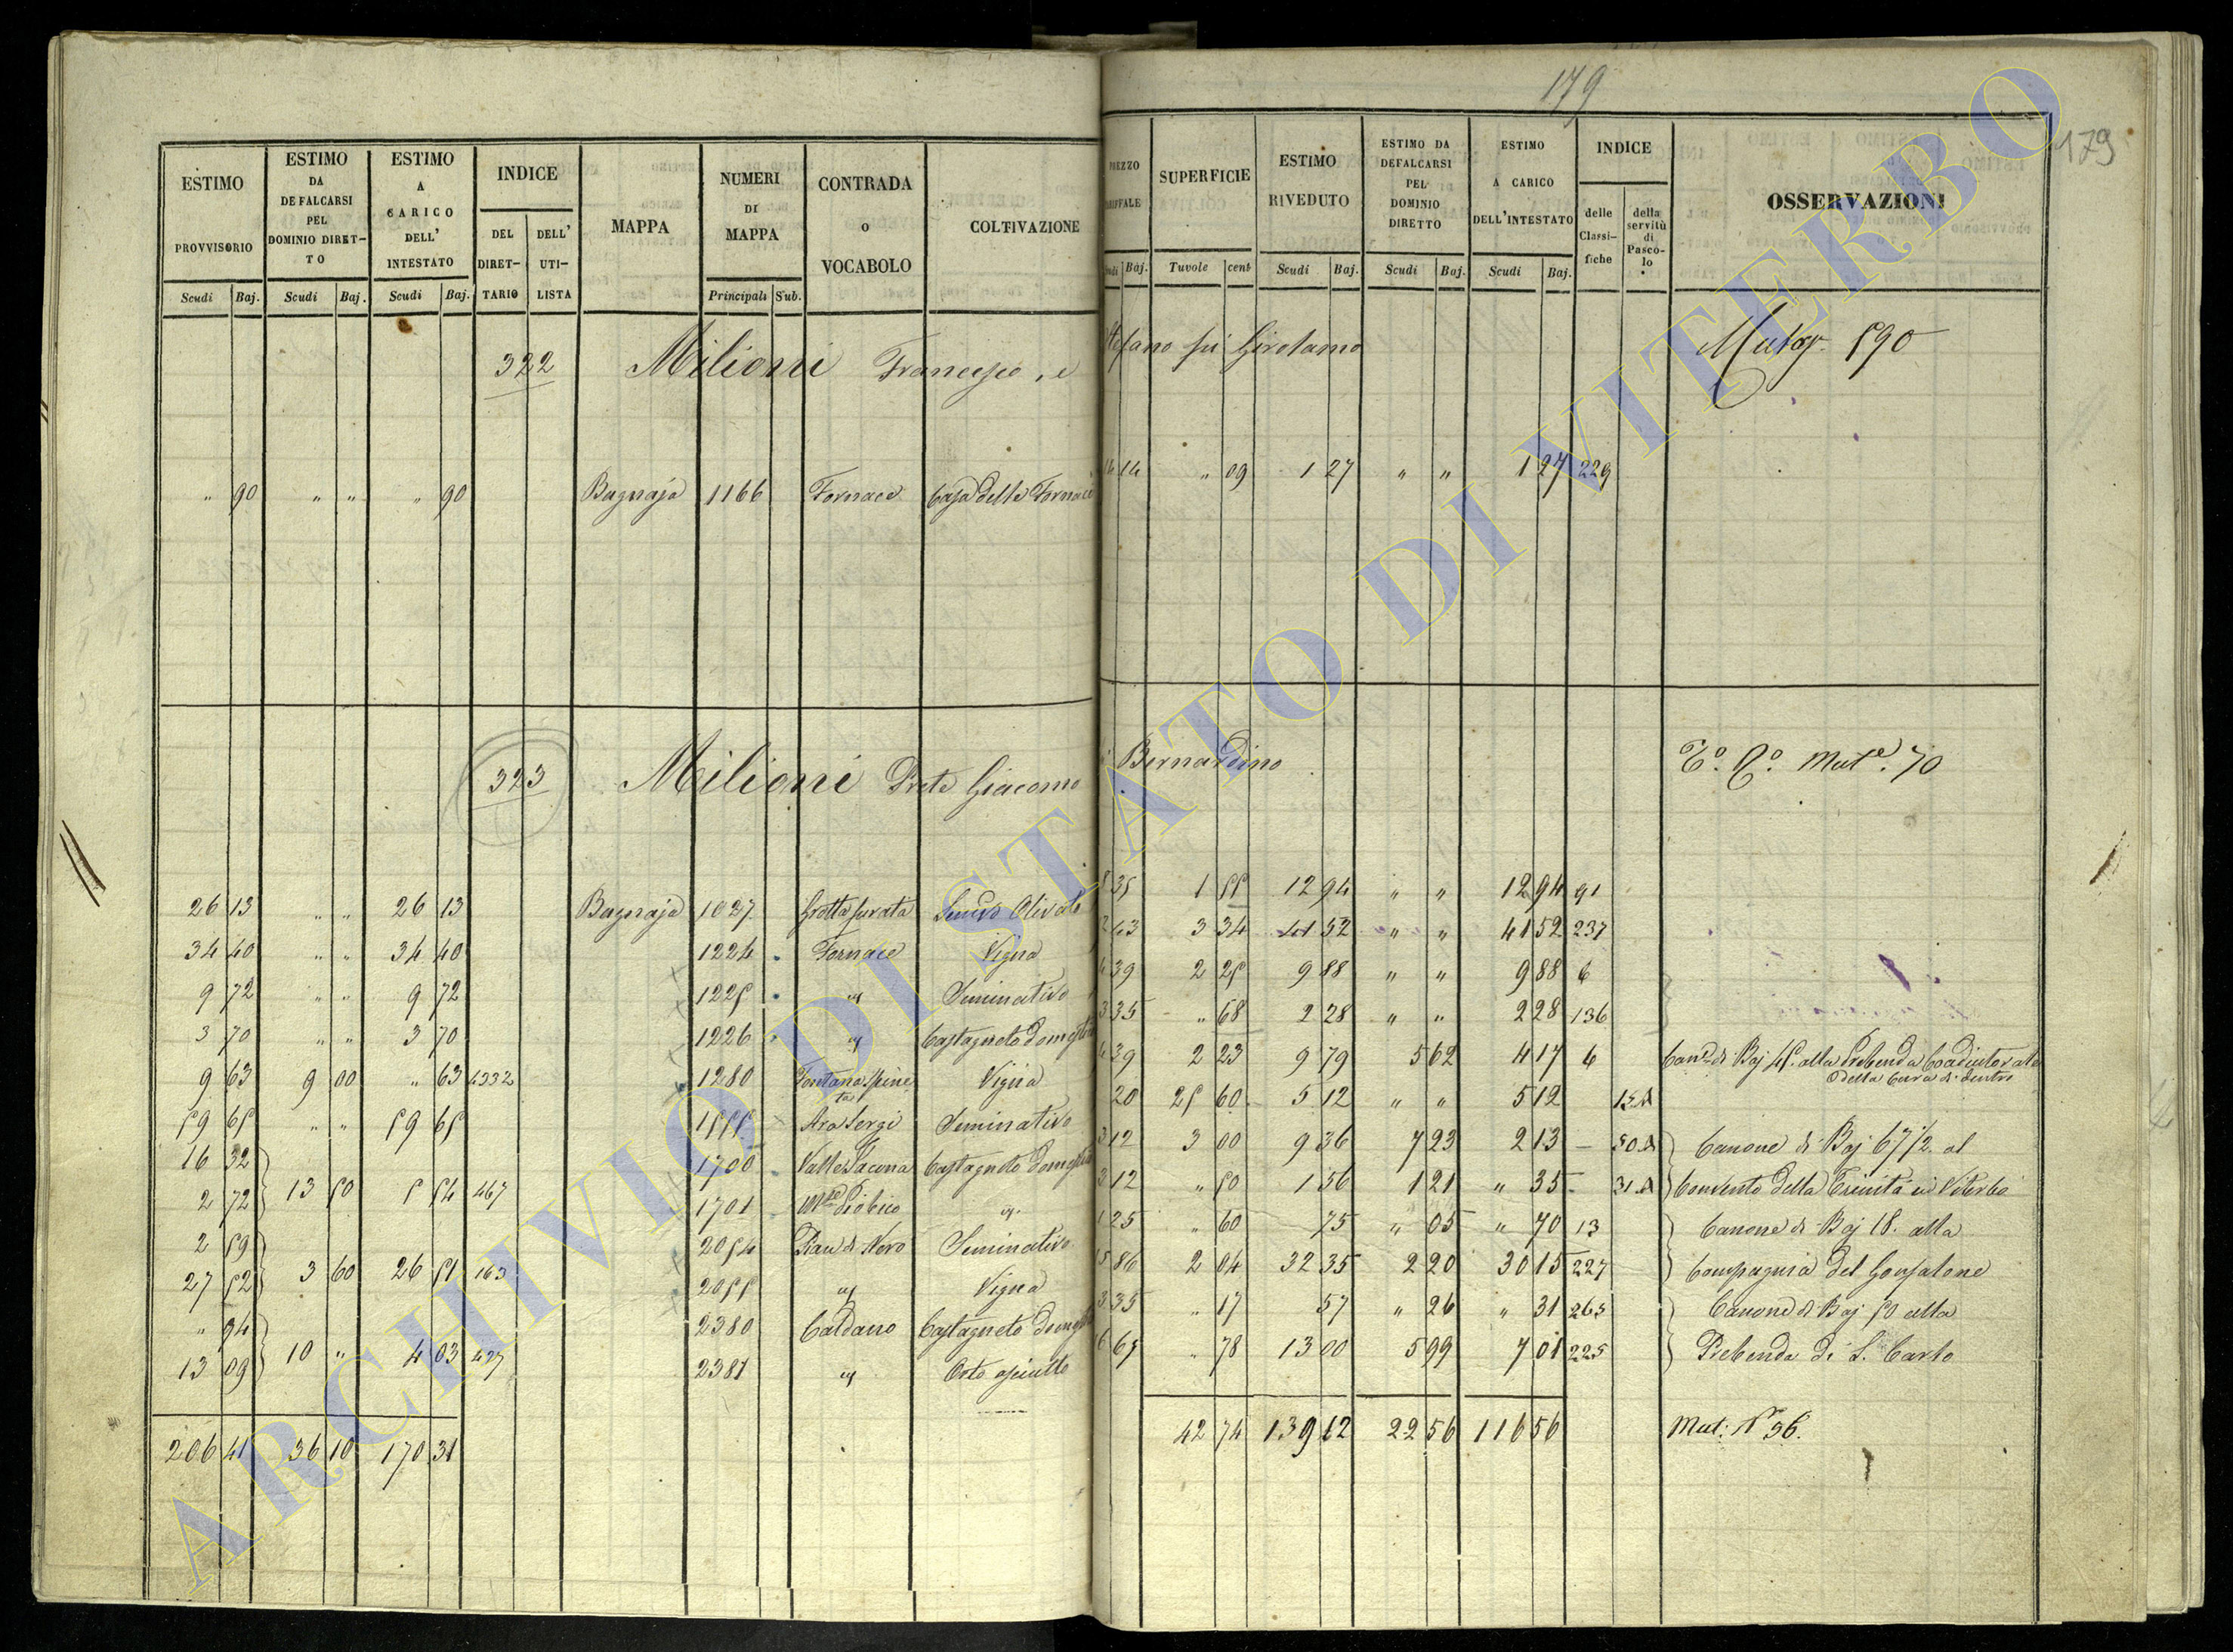 179
179
ESTIMO PROVVISORIO | ESTIMO DA DEFALCARSI PEL DOMINIO DIRET-TO | ESTIMO A CARICO DELL' INTESTATO | INDICE DEL DIRET-TARIO | DELL' UTI-LISTA | MAPPA | NUMERI DI MAPPA | CONTRADA O VOCABOLO | COLTIVAZIONE | SUPERFICIE | ESTIMO RIVEDUTO | ESTIMO DA DEFALCARSI PEL DOMINIO DIRETTO | ESTIMO A CARICO DELL'INTESTATO | INDICE delle Classi-fiche | della servitù di Pasco-lo | OSSERVAZIONI
Scudi Baj. | Scudi Baj. | Scudi Baj. | Principali Sub. | Baj. | Tavole cent | Scudi Baj. | Scudi Baj. | Scudi Baj.
322 Milioni Francesco, e Stefano fu Girolamo 590
" 90 " " " 90 Bagnaja 1166 Fornace Casa della Fornace 14 " 09 1 27 " " 1 27 229
323 Milioni Prete Giacomo Bernardino Mut.e 70
26 13 " " 26 13 Bagnaja 1027 Grotta furata Olivato 35 1 55 12 94 " " 12 94 91
34 40 " " 34 40 1224 Fornace Vigna 63 3 34 52 " " 41 52 237
9 72 " " 9 72 1225 " Seminativo 39 2 25 9 88 " " 9 88 6
3 70 " " 3 70 1226 " Castagneto domestico 35 " 68 2 28 " " 2 28 136
9 63 9 00 " 63 1280 Fontana Vigna 39 2 23 9 79 5 62 4 17 6 Can.e di Baj 45 alla Prebenda Coadiutorale
della Cura di dentro
59 65 " " 59 65 1555 Ara Sergi Seminativo 20 25 60 5 12 " " 5 12 13A
16 32 1700 Valle Castagneto domestico 12 3 00 9 36 7 23 2 13 — 50A Canone di Baj 67 1/2 al
2 72 13 50 5 54 467 1701 " 12 " 50 1 56 1 21 " 35 31A Convento della Trinità in Viterbo
2 59 2054 Pian di Nero Seminativo 25 " 60 75 " 05 " 70 13 Canone di Baj 18. alla
27 52 3 60 26 51 163 2055 " Vigna 86 2 04 32 35 2 20 30 15 227 Compagnia del Gonfalone
" 94 2380 Caldano Castagneto domestico 35 " 17 57 " 26 " 31 263 Canone di Baj 50 alla
13 09 10 " 4 03 427 2381 " Orto asciutto 67 " 78 13 00 5 99 7 01 225 Prebenda di S. Carlo
206 41 36 10 170 31 42 74 139 12 22 56 116 56 Mut: N 36.
ARCHIVIO DI STATO DI VITERBO